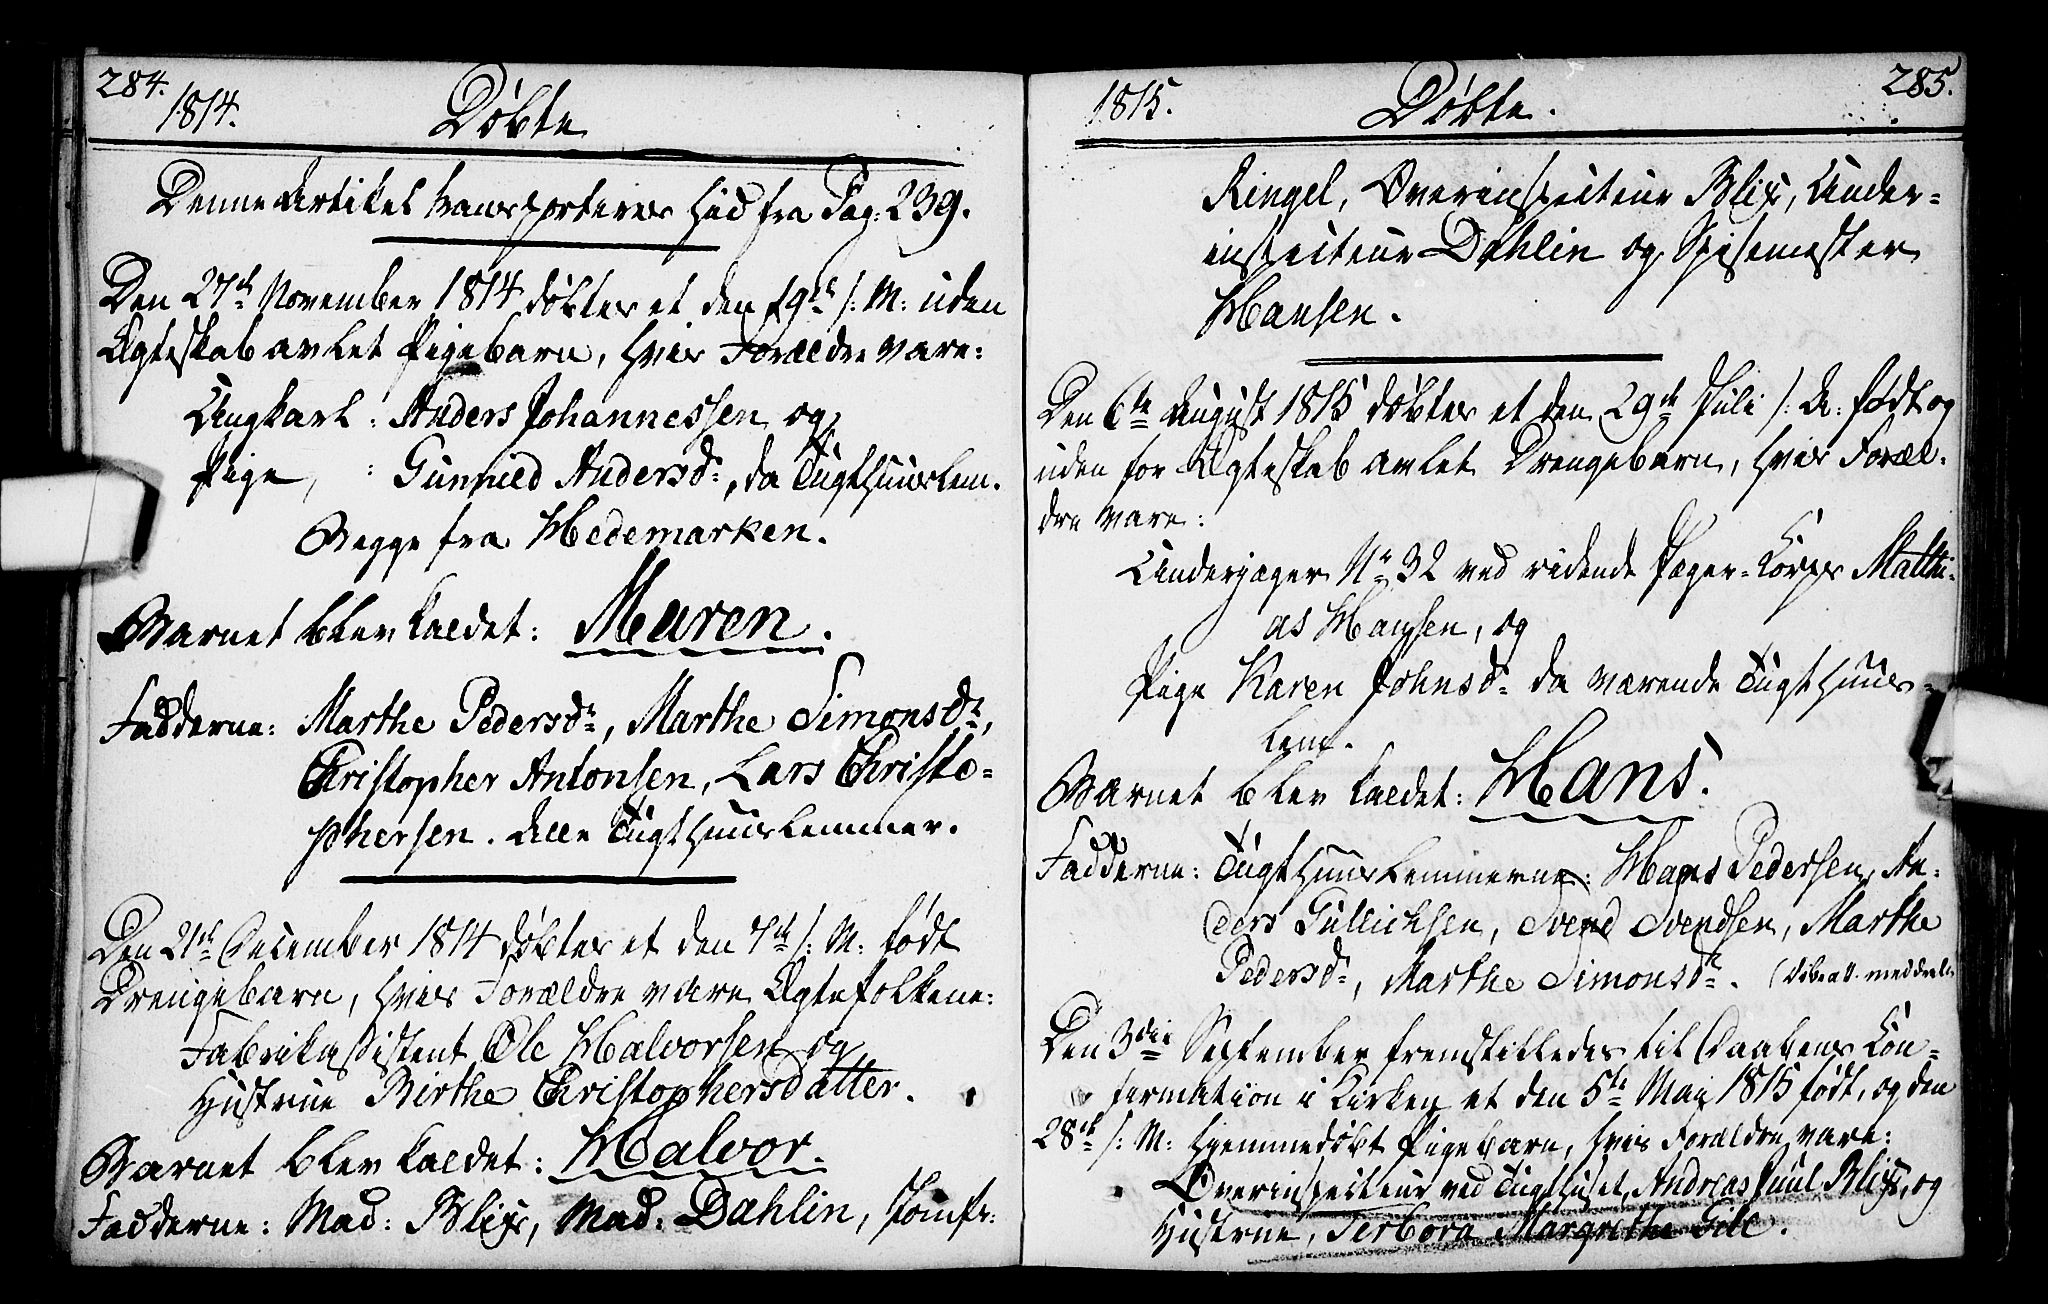 284.
1814.
Døbte
Denne Artikel transporteres hid fra Pag: 239.
Den 27de November 1814 døbtes et den 19de s: M: uden
Ægteskab avlet Pigebarn, hvis Forældre vare:
Ungkarl: Anders Johannessen og
Pige, : Gunnild Andersd:, da Tugthuuslem.
Begge fra Hedemarken.
Barnet blev kaldet: Maren.
Fadderne: Marthe Pedersdr, Marthe Simonsdr,
Christopher Antonsen, Lars Christo-
phersen. Alle Tugthuuslemmer.
Den 21de December 1814 døbtes et den 7de s: M: født
Drengebarn, hvis Forældre vare Ægtefolkene:
Fabrikassistent Ole Halvorsen og
Hustrue Birthe Christophersdatter.
Barnet blev kaldet: Halvor.
Fadderne: Mad: Blix, Mad. Dahlin, Jomfr:
1815.
Døbte.
285.
Ringel, Overinspecteur Blix, Under-
inspecteur Dahlin og Spisemester
Hansen.
Den 6te August 1815 døbtes et den 29de Juli s: A: født og
uden for Ægteskab avlet Drengebarn, hvis Foræl-
dre vare:
Underjæger No 32 ved ridende Jæger-Corps Matthi-
as Hansen, og
Pige Karen Johnsd: da værende Tugthuus-
lem.
Barnet blev kaldet: Hans.
Fadderne: Tugthuuslemmerne: Hans Pedersen, An-
ders Gullichsen, Svend Svendsen, Marthe
Pedersdr, Marthe Simonsdr. (
Den 3die September fremstilledes til Daabens Con-
firmation i Kirken et den 5te Mai 1815 født, og den
28de s: M: hjemmedøbt Pigebarn, hvis Forældre vare:
Overinspecteur ved Tugthuset, Andreas Juul Blix, og
Hustrue, Terbora Margrethe Gill.